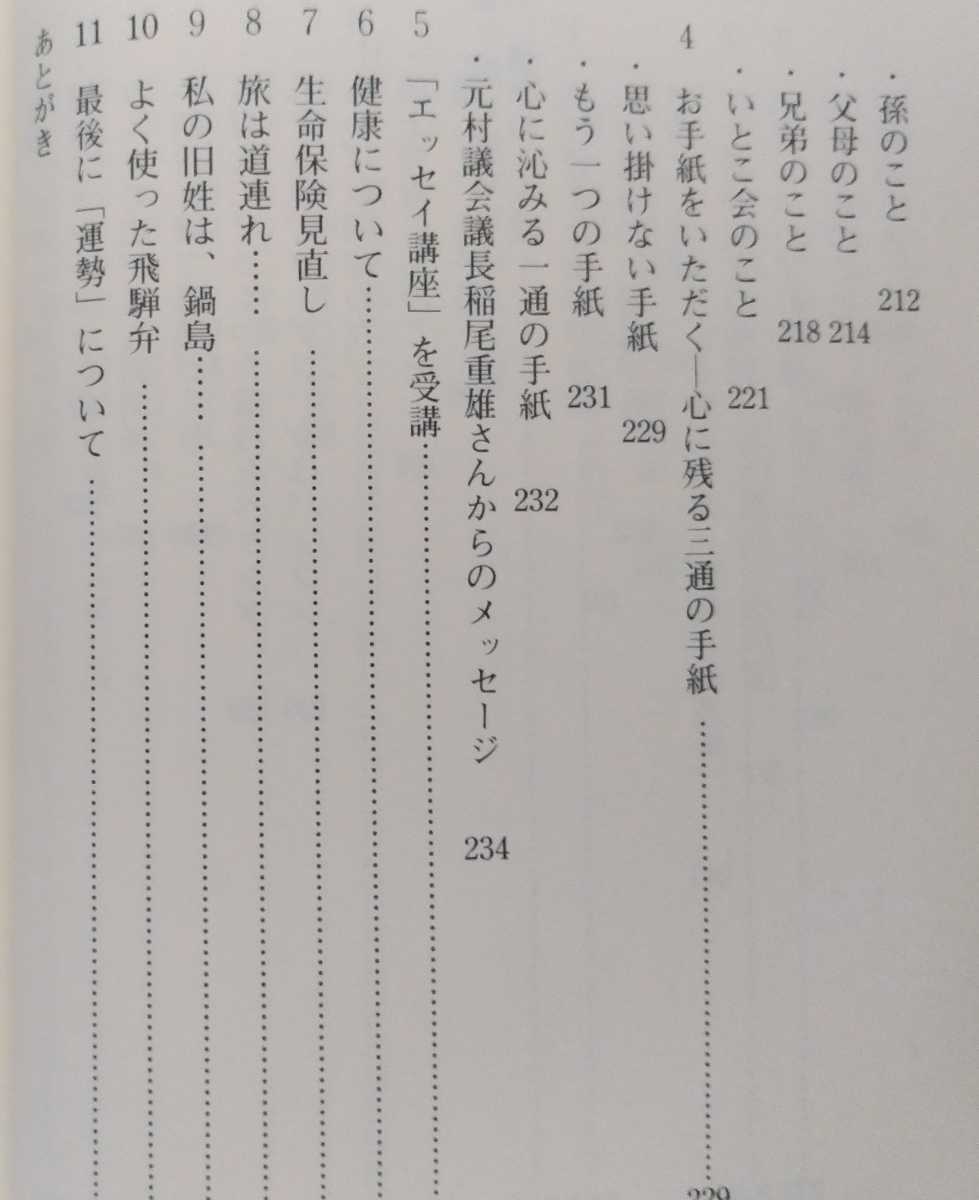 ・孫のこと 212
・父母のこと 214
・兄弟のこと 218
・いとこ会のこと 221
4 お手紙をいただく―心に残る三通の手紙……229
・思い掛けない手紙 229
・もう一つの手紙 231
・心に沁みる一通の手紙 232
・元村議会議長稲尾重雄さんからのメッセージ 234
5 「エッセイ講座」を受講……
6 健康について……
7 生命保険見直し……
8 旅は道連れ……
9 私の旧姓は、鍋島……
10 よく使った飛騨弁……
11 最後に「運勢」について……
あとがき